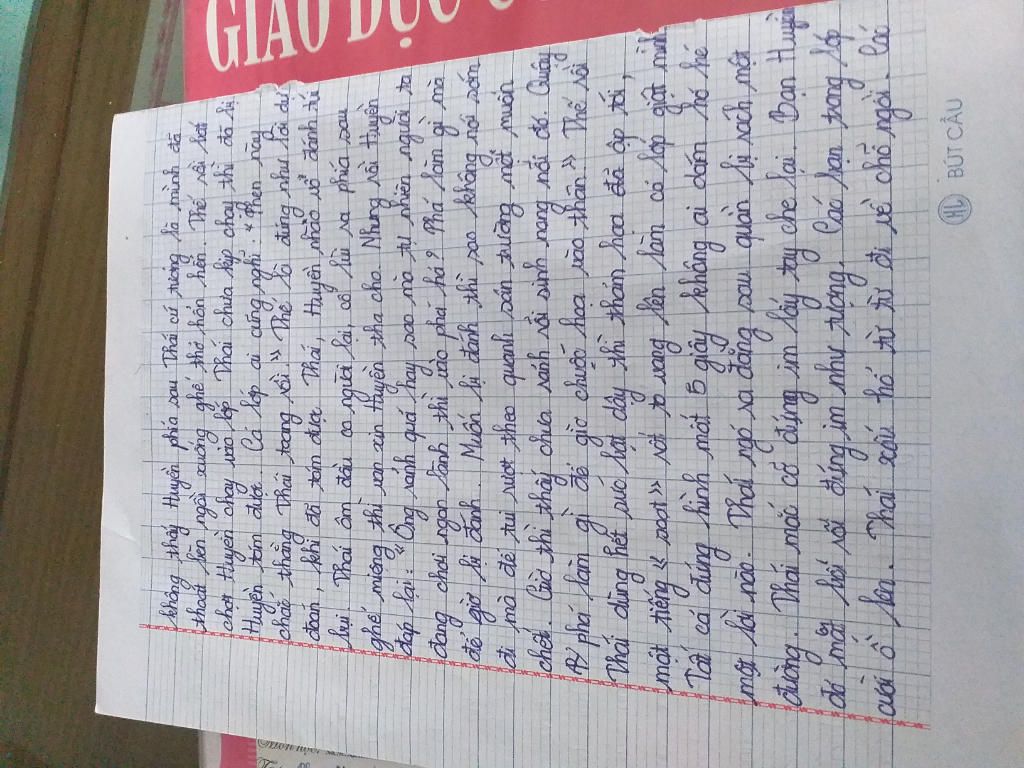 GIÁO DỤC C
không thấy Huyền phía sau Thái cứ tưởng là mình đã
thoát liền ngồi xuống ghế thở hổn hển. Thế rồi bất
chợt Huyền chạy vào lớp Thái chưa kịp chạy thì đã bị
Huyền tóm được. Cả lớp ai cũng nghĩ: "Phen này
chết thằng Thái toang rồi." Thế là đúng như lời dự
đoán, khi đã tóm được Thái, Huyền nhào vô đánh túi
bụi. Thái ôm đầu co người lại, cố lùi ra phía sau
ghé miệng thì van xin Huyền tha cho. Nhưng rồi Huyền
đáp lại: "Ông rảnh quá hay sao mà tự nhiên người ta
đang chơi ngon lành thì vào phá há? Phá làm gì mà
để giờ bị đánh. Muốn bị đánh thì sao không nói sớm
đi mà để tui rượt theo quanh sân trường mệt muốn
chết. Giờ thì thấy chưa sánh rồi sinh nông nổi đó. Quậy
phá làm gì để giờ chuốc họa vào thân." Thế rồi
Thái dùng hết sức bật dậy thì thảm họa đã ập tới,
một tiếng "soạt" rất to vang lên làm cả lớp giật mình
Tất cả đứng hình mất 5 giây không ai dám hó hé
một lời nào. Thái ngó ra đằng sau quần bị rách một
đường. Thái mới cố đứng im lấy tay che lại. Bạn Huyền
đỏ mặt hết rồi đứng im như tượng. Các bạn trong lớp
cười ồ lên. Thái xấu hổ từ từ đi về chỗ ngồi. Cái
BÚT CÂU